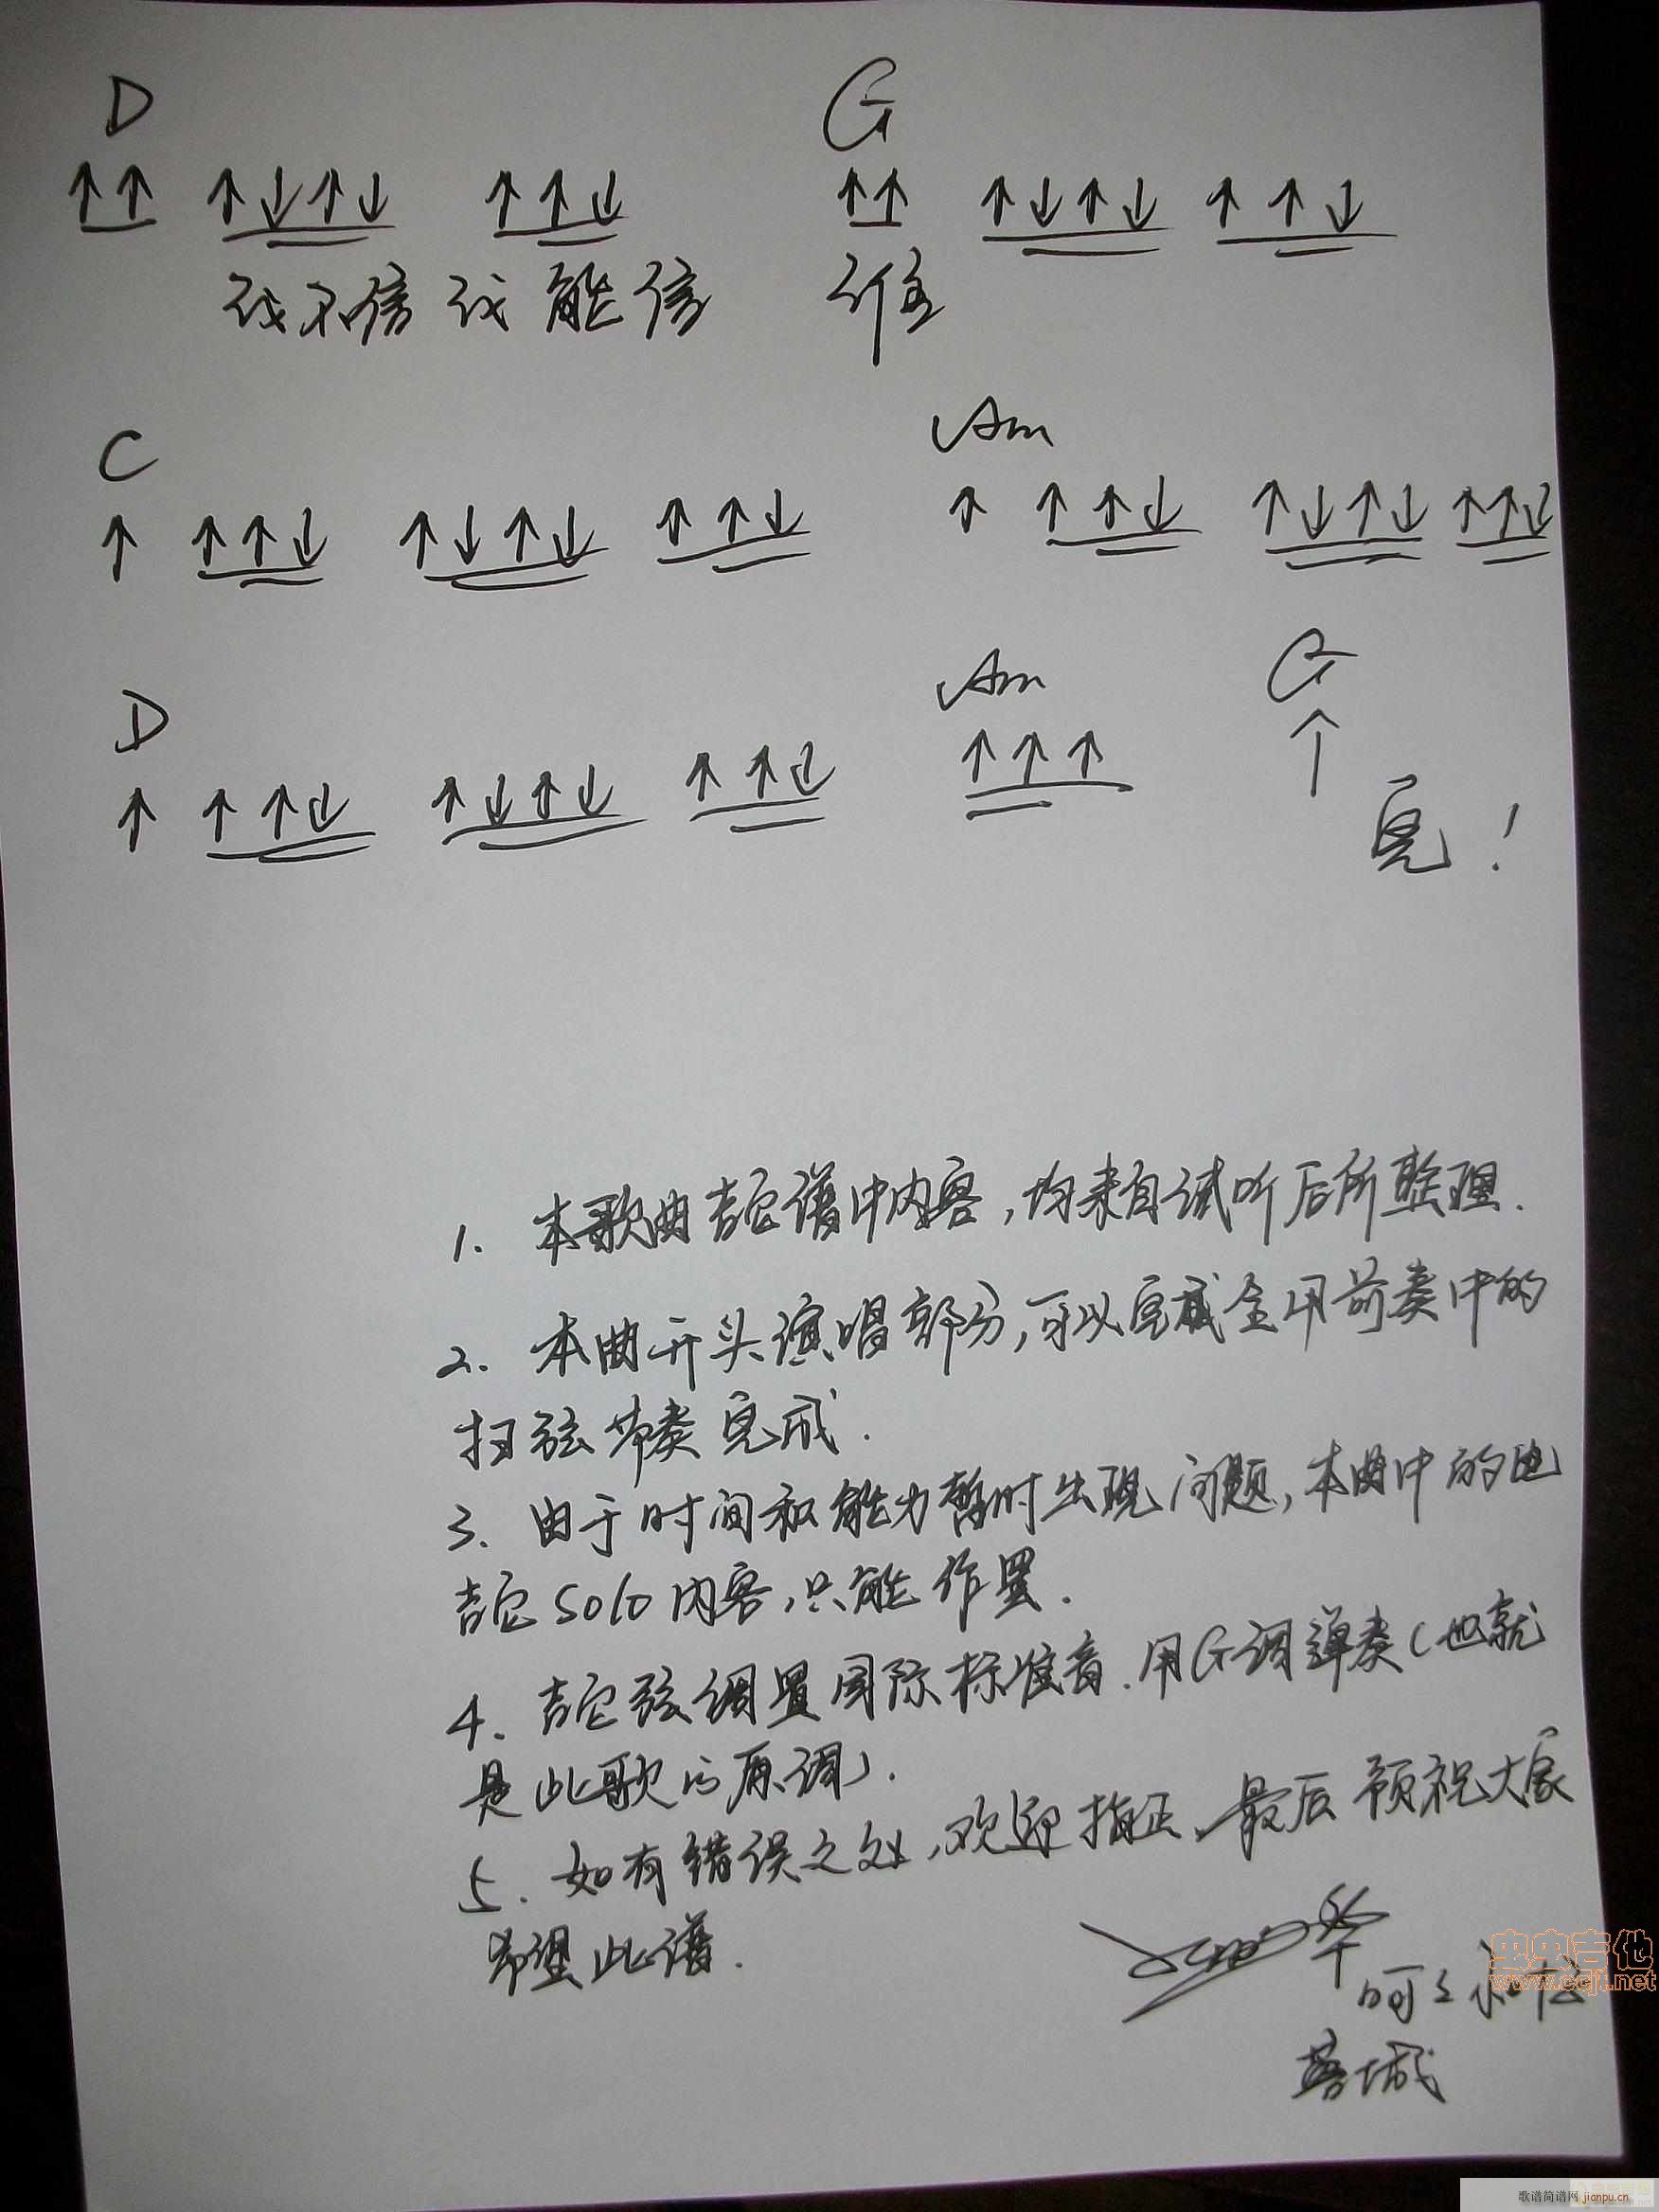 D G
↑↑ ↑↓↑↓ ↑↑↓ ↑↑ ↑↓↑↓ ↑↑↓
我不信我能信 谁
C Am
↑ ↑↑↓ ↑↓↑↓ ↑↑↓ ↑ ↑↑↓ ↑↓↑↓ ↑↑↓
D Am G
↑ ↑↑↓ ↑↓↑↓ ↑↑↓ ↑↑↑ ↑
完!
1. 本歌曲吉它谱中内容,均来自试听后所整理.
2. 本曲开头演唱部分,可以完成全用前奏中的
扫弦节奏完成.
3. 由于时间和能力暂时出现问题,本曲中的电
吉它Solo内容,只能作罢.
4. 吉它弦调置国际标准音.用G调弹奏(也就
是此歌的原调).
5. 如有错误之处,欢迎指正,最后预祝大家
希望此谱.
蓉城
虫虫吉他
www.ccjt.net
歌谱简谱网 jianpu.cn